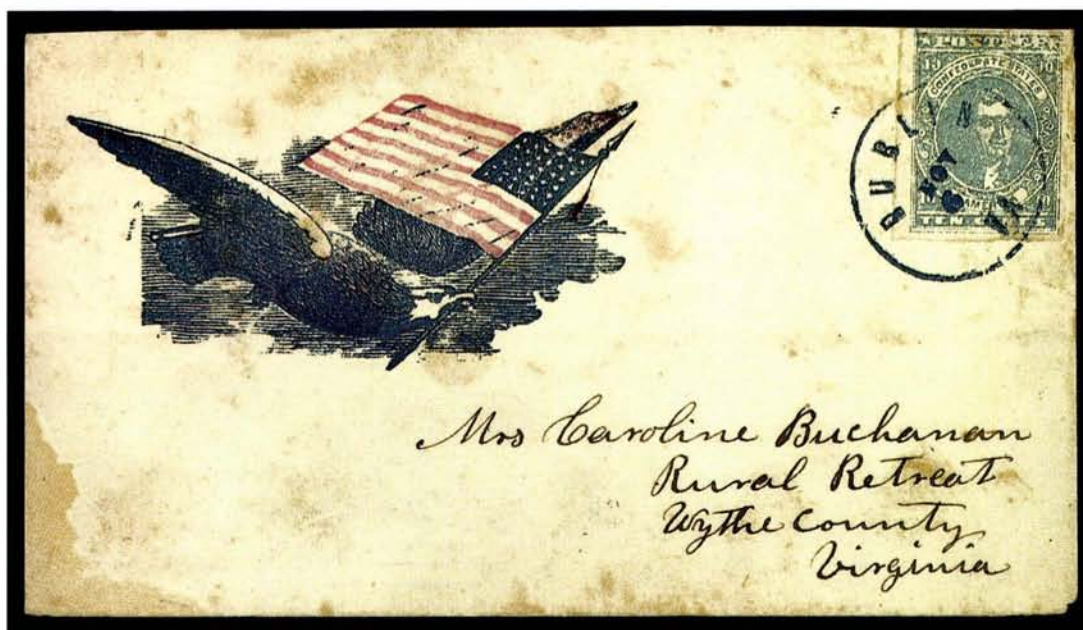 POSTAGE
10 10
CONFEDERATE STATES
DUBLIN
NOV
VA
TEN
Mrs Caroline Buchanan
Rural Retreat
Wythe County
Virginia